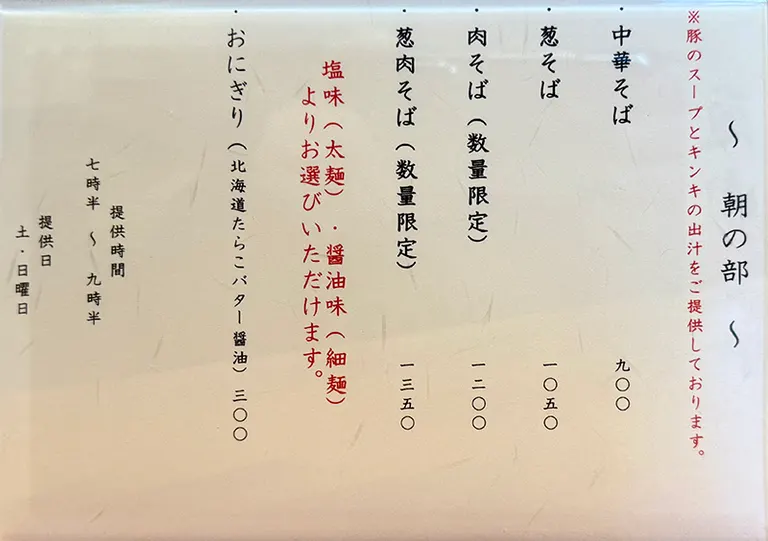 〜 朝の部 〜
※豚のスープとキンキの出汁をご提供しております。
・中華そば 九〇〇
・葱そば 一〇五〇
・肉そば（数量限定） 一二〇〇
・葱肉そば（数量限定） 一三五〇
塩味（太麺）・醤油味（細麺）
よりお選びいただけます。
・おにぎり（北海道たらこバター醤油）三〇〇
提供時間
七時半 〜 九時半
提供日
土・日曜日